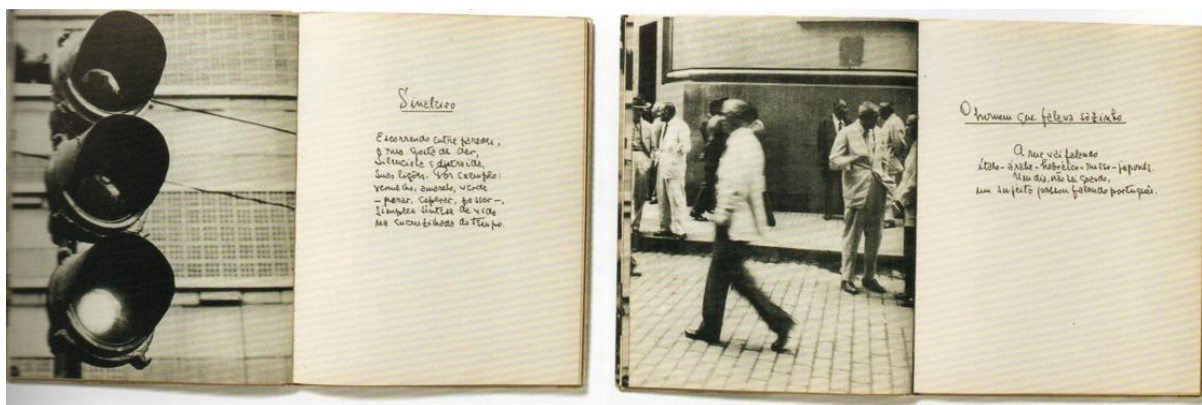 Sinaleiro
Escorrendo entre paredes,
a rua gosta de dar,
silenciosa e distraída,
suas lições. Por exemplo:
vermelho, amarelo, verde
– parar, esperar, passar –,
simples síntese da vida
na encruzilhada do tempo.
O homem que falava sòzinho
A rua vai falando
ítalo-árabe-hebraico-russo-japonês.
Um dia, não sei quando,
um sujeito passou falando português.